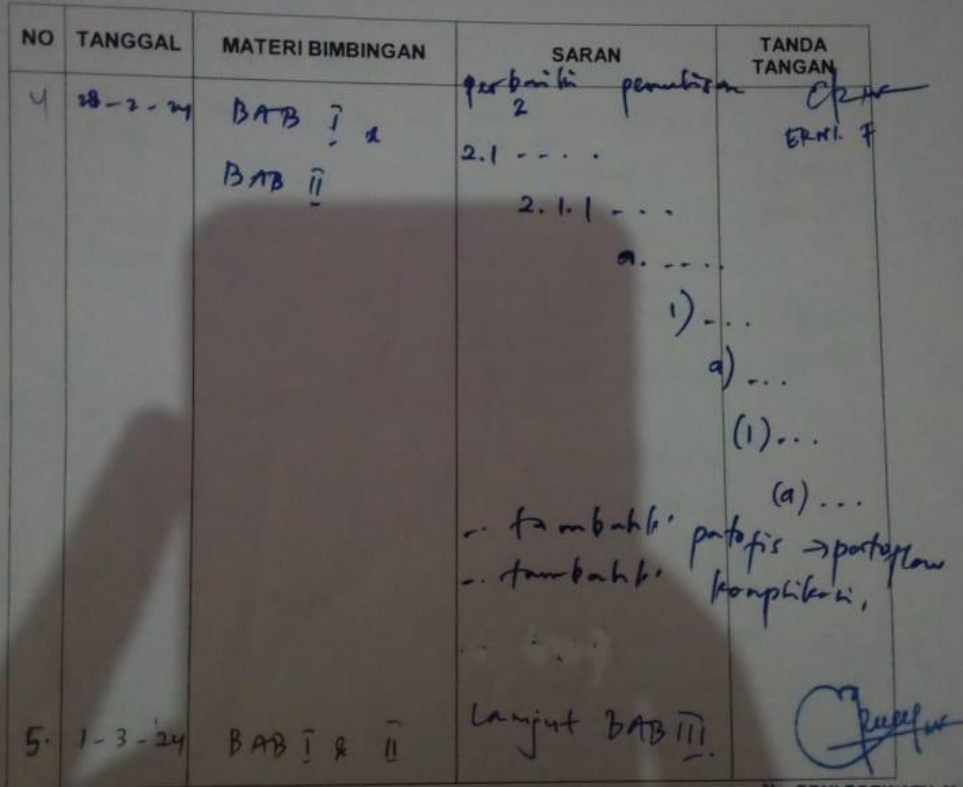 NO TANGGAL MATERI BIMBINGAN SARAN TANDA TANGAN
4 28-2-24 BAB I & perbaiki penulisan
BAB II 2 ERNI. F
2.1 ....
2.1.1 ...
a. ....
1)...
a)...
(1)...
(a)...
- tambahk. patofis → patoflow
- tambahk. komplikasi,
5. 1-3-24 BAB I & II Lanjut BAB III.